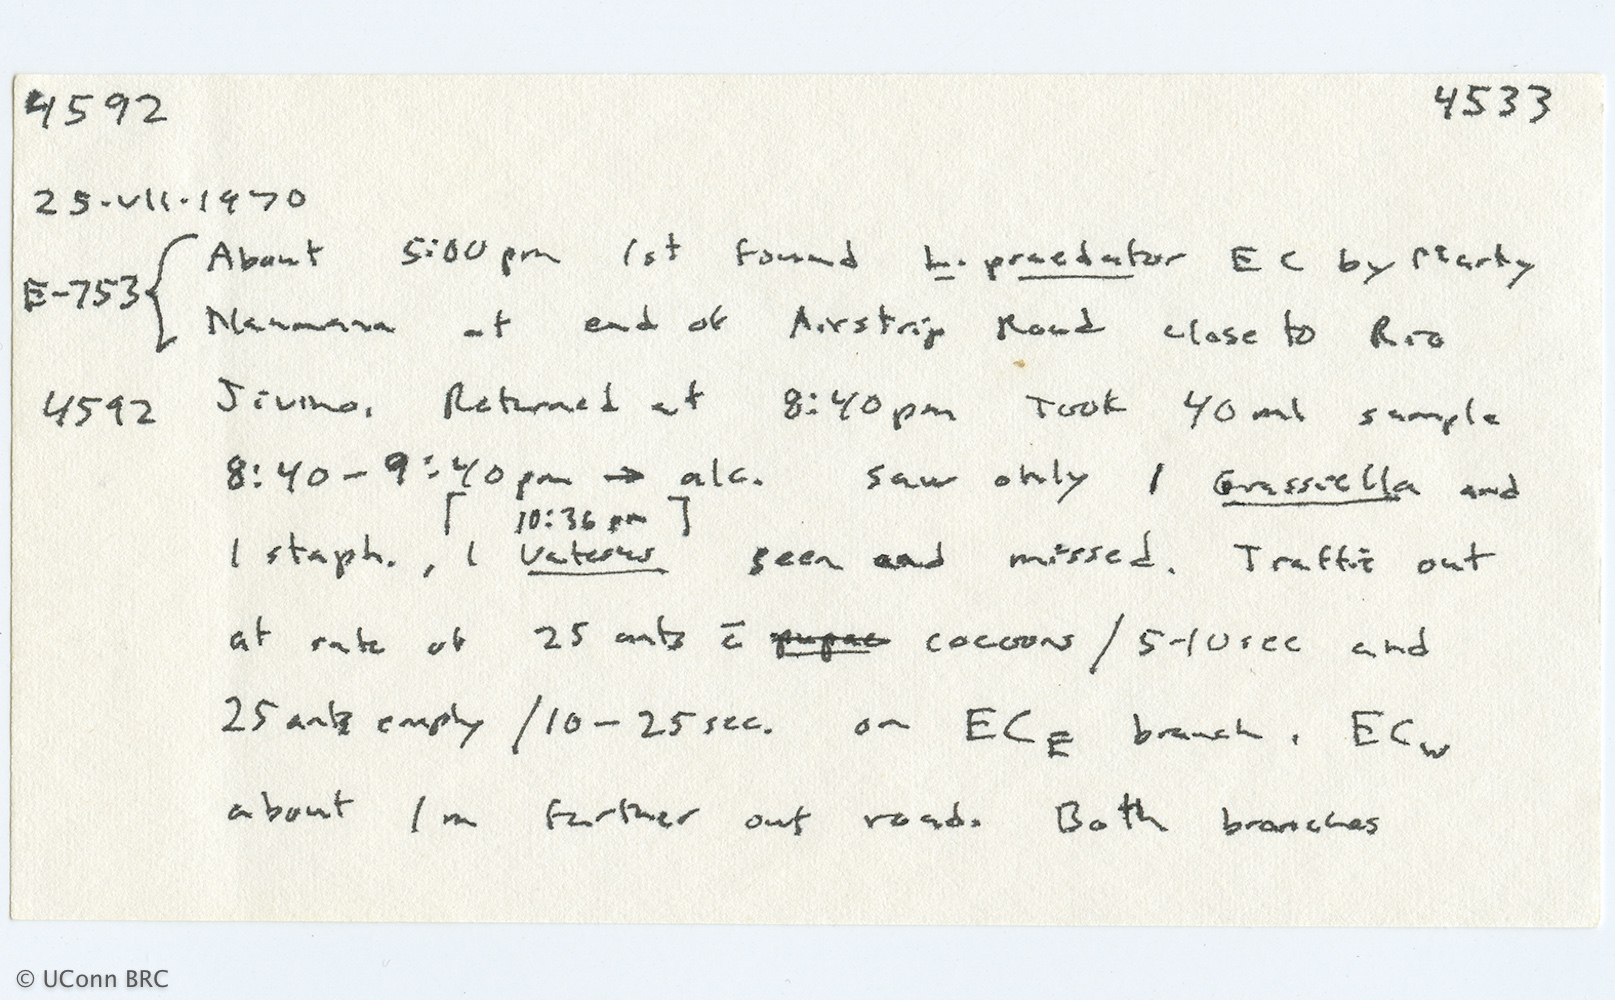 4592 4533
25.VII.1970
E-753 { About 5:00 pm 1st found L. praedator EC by Marty
Naumann at end of Airstrip Road close to Rio
4592 Jivino. Returned at 8:40 pm Took 40 ml sample
8:40 - 9:40 pm → alc. Saw only 1 Grassiella and
[ 10:36 pm ]
1 staph., 1 Vatesus seen and missed. Traffic out
at rate of 25 ants c̄ pupae cocoons / 5-10 sec and
25 ants empty / 10 - 25 sec. on EC_E branch. EC_W
about 1 m farther out road. Both branches
© UConn BRC